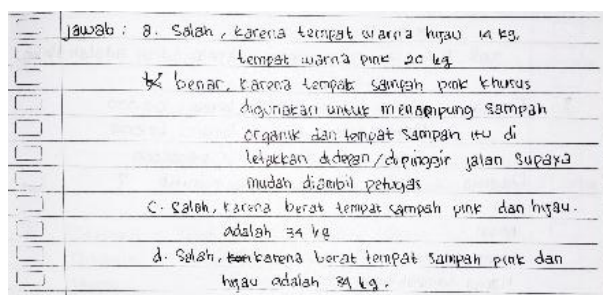 jawab : a. Salah, karena tempat warna hijau 14 kg,
tempat warna pink 20 kg
b. benar, karena tempat sampah pink khusus
digunakan untuk menampung sampah
organik dan tempat sampah itu di
letakkan didepan/dipinggir jalan supaya
mudah diambil petugas
c. Salah, karena berat tempat sampah pink dan hijau.
adalah 34 kg
d. Salah, karena berat tempat sampah pink dan
hijau adalah 34 kg.